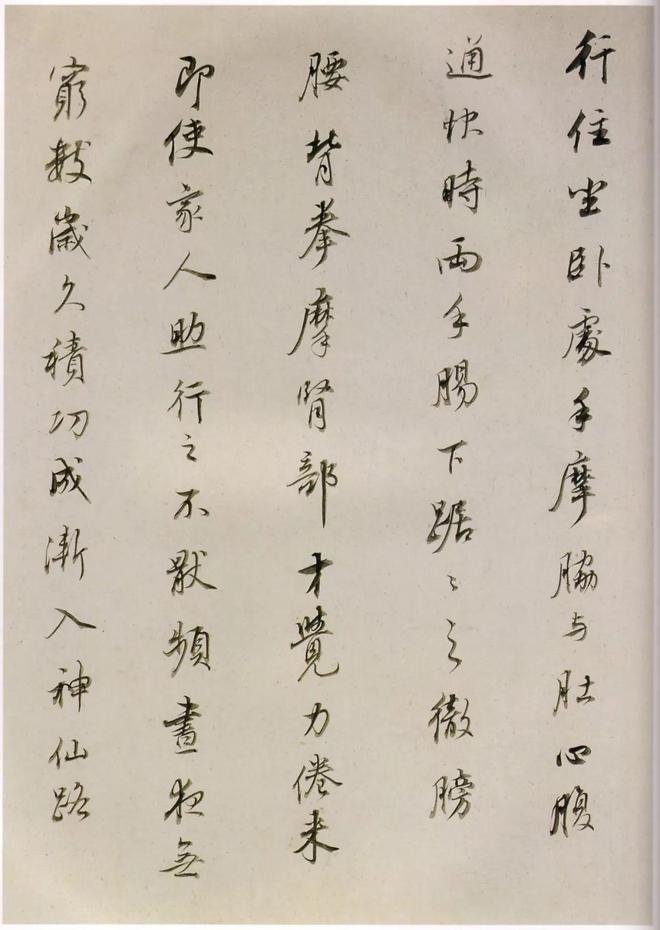 行住坐卧處手摩脇与肚心腹
通快時兩手腸下踞踞之徹膀
腰背拳摩腎部才覺力倦来
即使家人助行之不厭頻晝夜無
窮數歲久積功成漸入神仙路